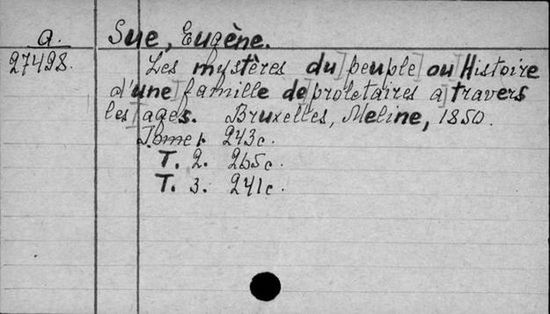 a. Sue, Eugène.
27498. Les mystères du peuple ou Histoire
d'une famille de proletaires a travers
les ages. Bruxelles, Meline, 1850.
Tome 1. 243c.
T. 2. 265c.
T. 3. 241c.